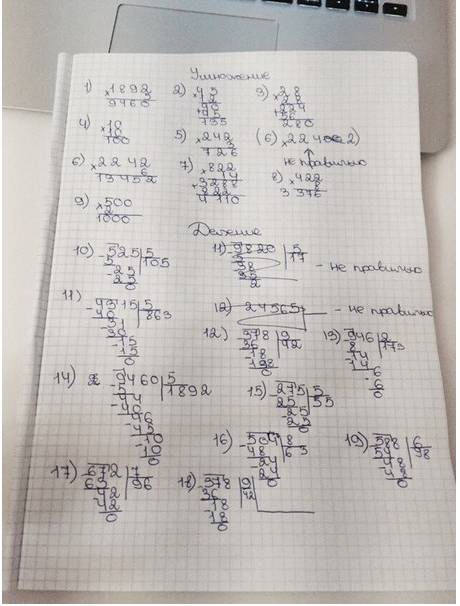 Умножение
1) ×1892
5
9460
2)
3) ×28
224
+56
280
4) ×10
×10
100
5) ×242
3
726
(6) ×224 2)
не правильно
6) ×2242
6
13452
7) ×822
4110
8) ×422
8
3376
9) ×500
2
1000
Деление
10) -525|5
5 |105
-25
25
0
11) -9820|5
5 |17
38
35
2
- не правильно
11) -4315|5
40 |863
-31
30
-15
15
0
12) 24565
- не правильно
12) -378|9
36 |42
-18
18
0
13) -346|2
|173
14
-14
-6
6
0
14) -9460|5
5 |1892
-44
40
-46
45
-10
10
0
15) -275|5
25 |55
-25
25
0
16) -504|8
48 |63
-24
24
0
17) -672|7
63 |96
-42
42
0
18) -378|9
36 |42
-18
18
0
19) -588|6
54 |98
-48
48
0